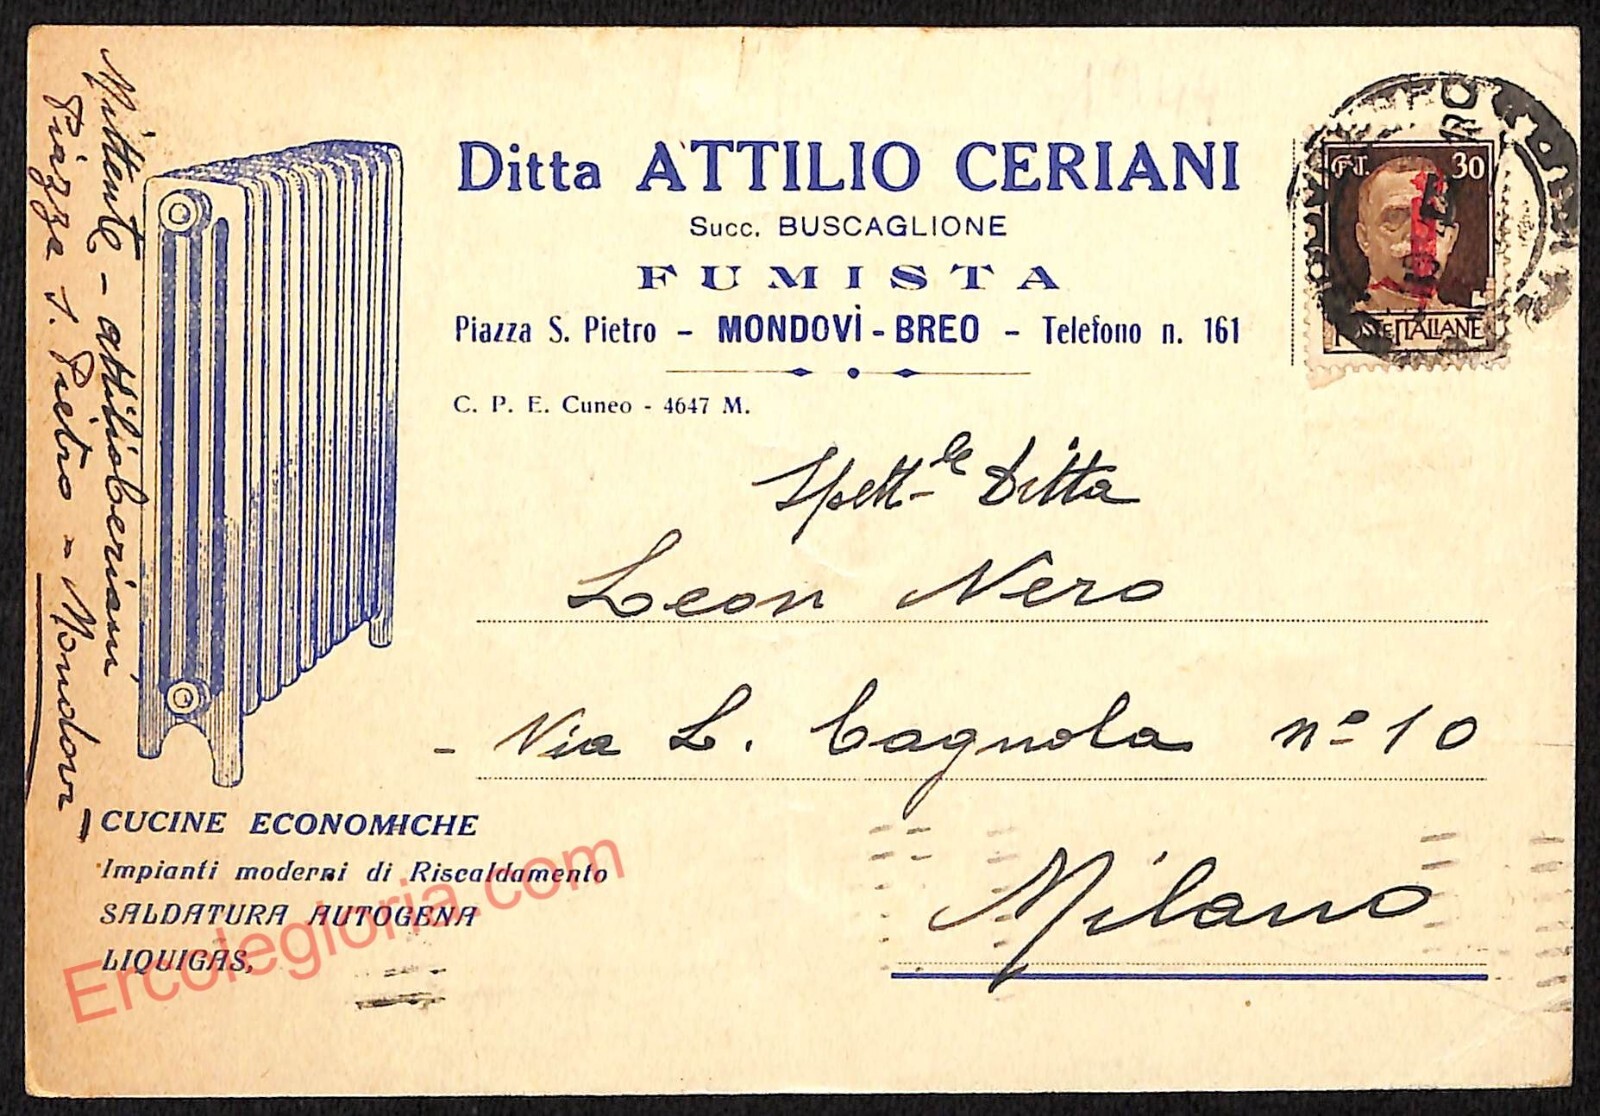 Ditta ATTILIO CERIANI
Succ. BUSCAGLIONE
FUMISTA
Piazza S. Pietro - MONDOVÌ - BREO - Telefono n. 161
C. P. E. Cuneo - 4647 M.
CENT. 30
POSTE ITALIANE
Spett.le Ditta
Leon Nero
- Via L. Cagnola nº 10
Milano
Mittente - Attilio Ceriani
Piazza S. Pietro - Mondovì
CUCINE ECONOMICHE
Impianti moderni di Riscaldamento
SALDATURA AUTOGENA
LIQUIGAS,
Ercolegloria.com